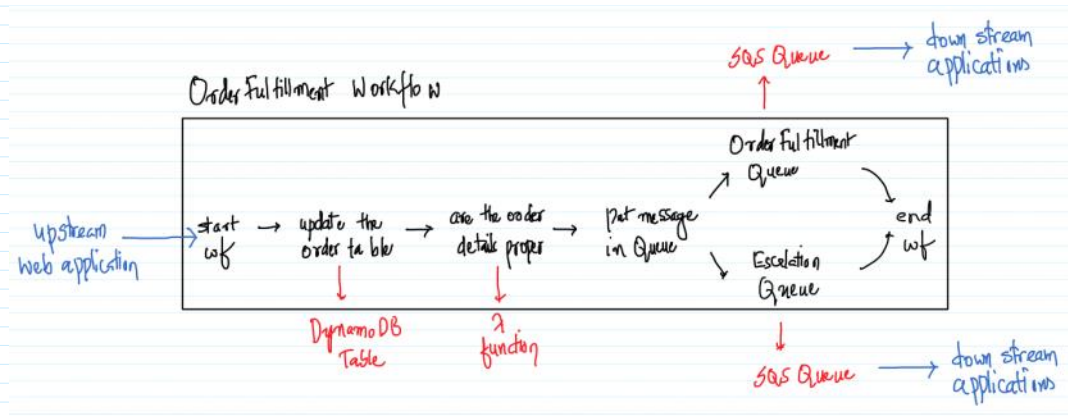 SQS Queue
down stream
applications
Order Fulfillment Workflow
Order Fulfillment
Queue
upstream
web application
start
wf
update the
order table
are the order
details proper
put message
in Queue
end
wf
Escelation
Queue
DynamoDB
Table
λ
function
SQS Queue
down stream
applications